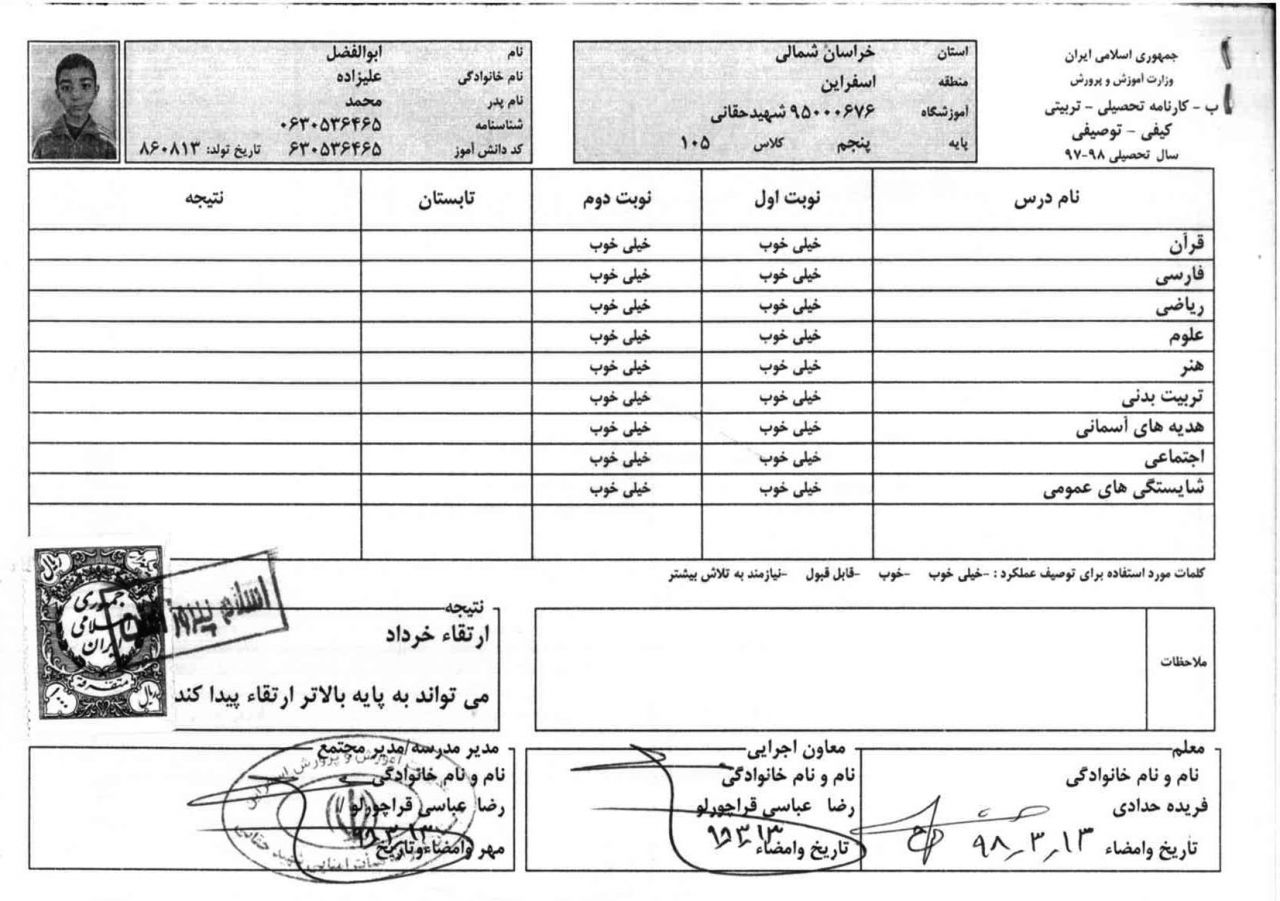 جمهوری اسلامی ایران
وزارت آموزش و پرورش
ب - کارنامه تحصیلی - تربیتی
کیفی - توصیفی
سال تحصیلی ۹۸-۹۷
استان خراسان شمالی
منطقه اسفراین
آموزشگاه ۹۵۰۰۰۶۷۶ شهیدحقانی
پایه پنجم کلاس ۱۰۵
نام ابوالفضل
نام خانوادگی علیزاده
نام پدر محمد
شناسنامه ۰۶۳۰۵۳۶۴۶۵
کد دانش آموز ۶۳۰۵۳۶۴۶۵ تاریخ تولد: ۸۶۰۸۱۳
نام درس نوبت اول نوبت دوم تابستان نتیجه
قرآن خیلی خوب خیلی خوب
فارسی خیلی خوب خیلی خوب
ریاضی خیلی خوب خیلی خوب
علوم خیلی خوب خیلی خوب
هنر خیلی خوب خیلی خوب
تربیت بدنی خیلی خوب خیلی خوب
هدیه های آسمانی خیلی خوب خیلی خوب
اجتماعی خیلی خوب خیلی خوب
شایستگی های عمومی خیلی خوب خیلی خوب
کلمات مورد استفاده برای توصیف عملکرد : -خیلی خوب -خوب -قابل قبول -نیازمند به تلاش بیشتر
ملاحظات
نتیجه
ارتقاء خرداد
می تواند به پایه بالاتر ارتقاء پیدا کند
ریال
جمهوری
اسلامی
ایران
متفرقه
۱۰۰۰ ریال
اسلام پیروز است
معلم
نام و نام خانوادگی
فریده حدادی
تاریخ وامضاء ۹۸٫۳٫۱۳
معاون اجرایی
نام و نام خانوادگی
رضا عباسی قراچورلو
تاریخ وامضاء ۹۸٫۳٫۱۳
مدیر مدرسه/مدیر مجتمع
نام و نام خانوادگی
رضا عباسی قراچورلو
مهر وامضاءوتاریخ ۹۸٫۳٫۱۳
آموزش و پرورش